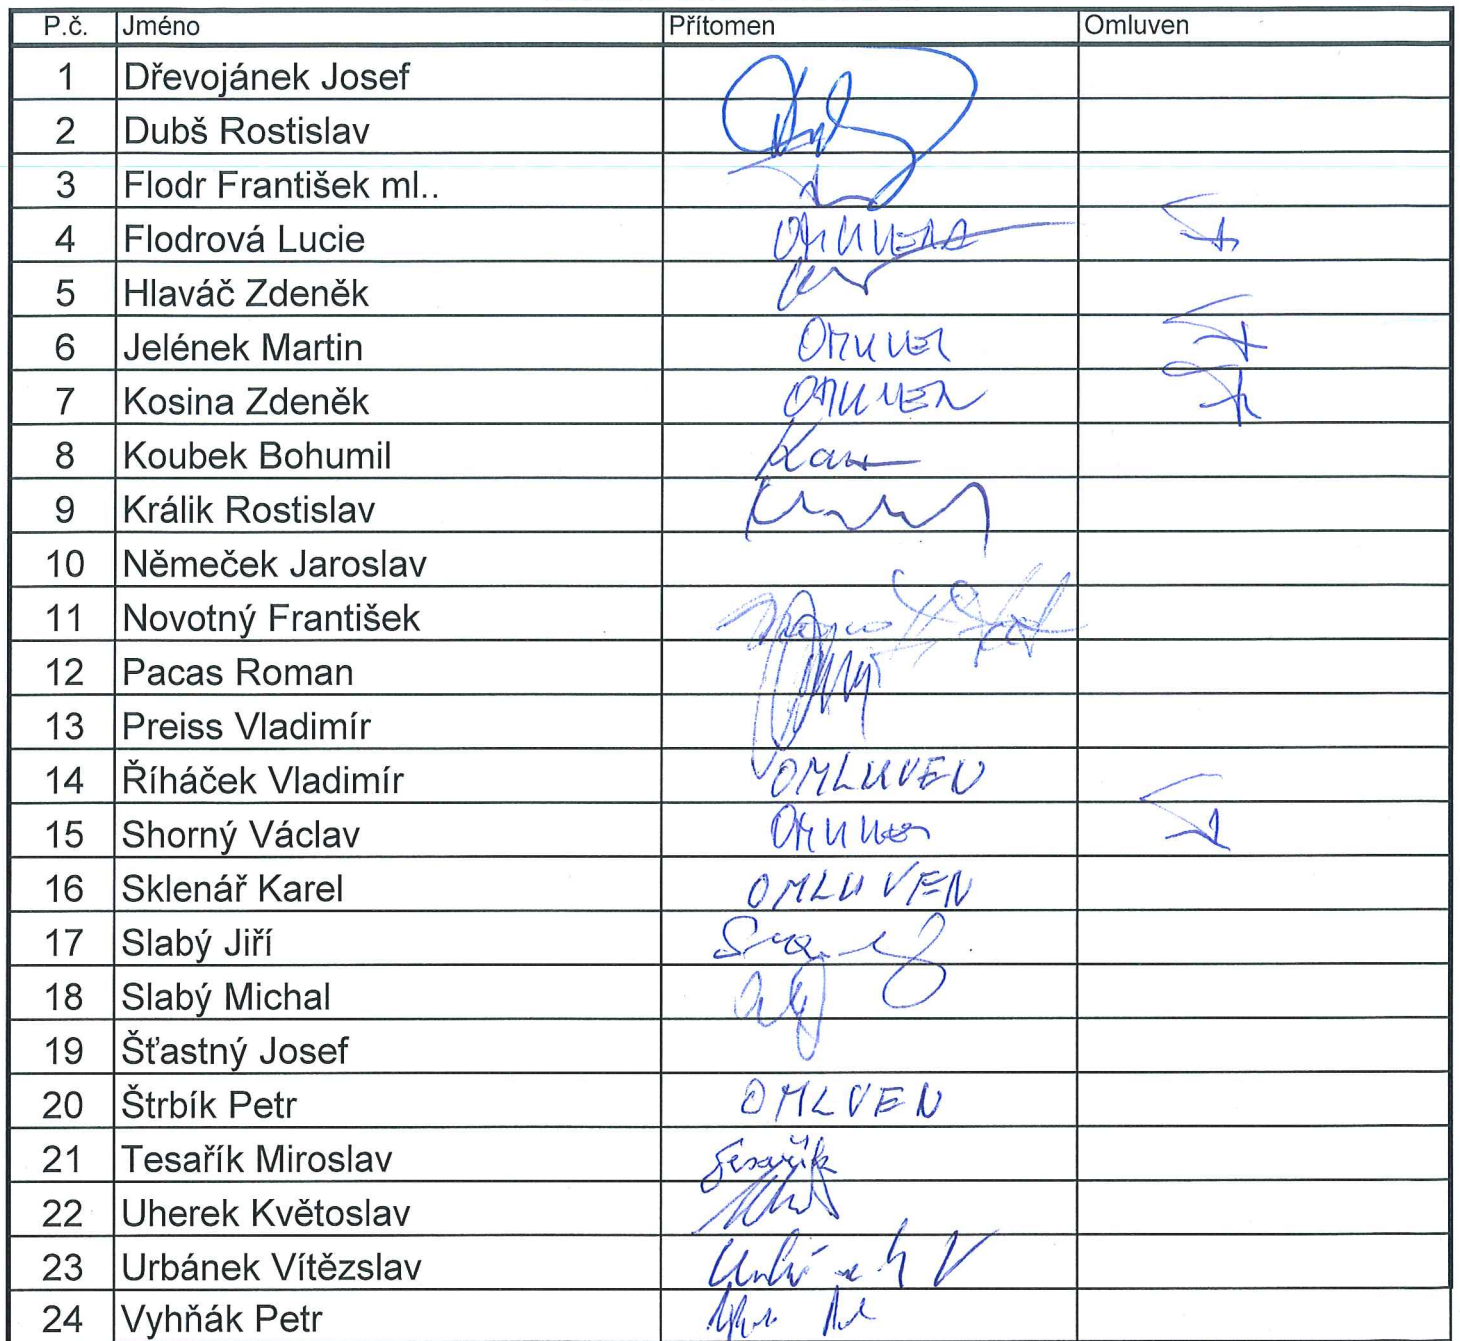 P.č. Jméno Přítomen Omluven
1 Dřevojánek Josef
2 Dubš Rostislav
3 Flodr František ml..
4 Flodrová Lucie OMLUVENA
5 Hlaváč Zdeněk
6 Jelének Martin OMLUVEN
7 Kosina Zdeněk OMLUVEN
8 Koubek Bohumil
9 Králik Rostislav
10 Němeček Jaroslav
11 Novotný František
12 Pacas Roman
13 Preiss Vladimír
14 Říháček Vladimír OMLUVEN
15 Shorný Václav OMLUVEN
16 Sklenář Karel OMLUVEN
17 Slabý Jiří
18 Slabý Michal
19 Šťastný Josef
20 Štrbík Petr OMLVEN
21 Tesařík Miroslav Tesařík
22 Uherek Květoslav
23 Urbánek Vítězslav
24 Vyhňák Petr